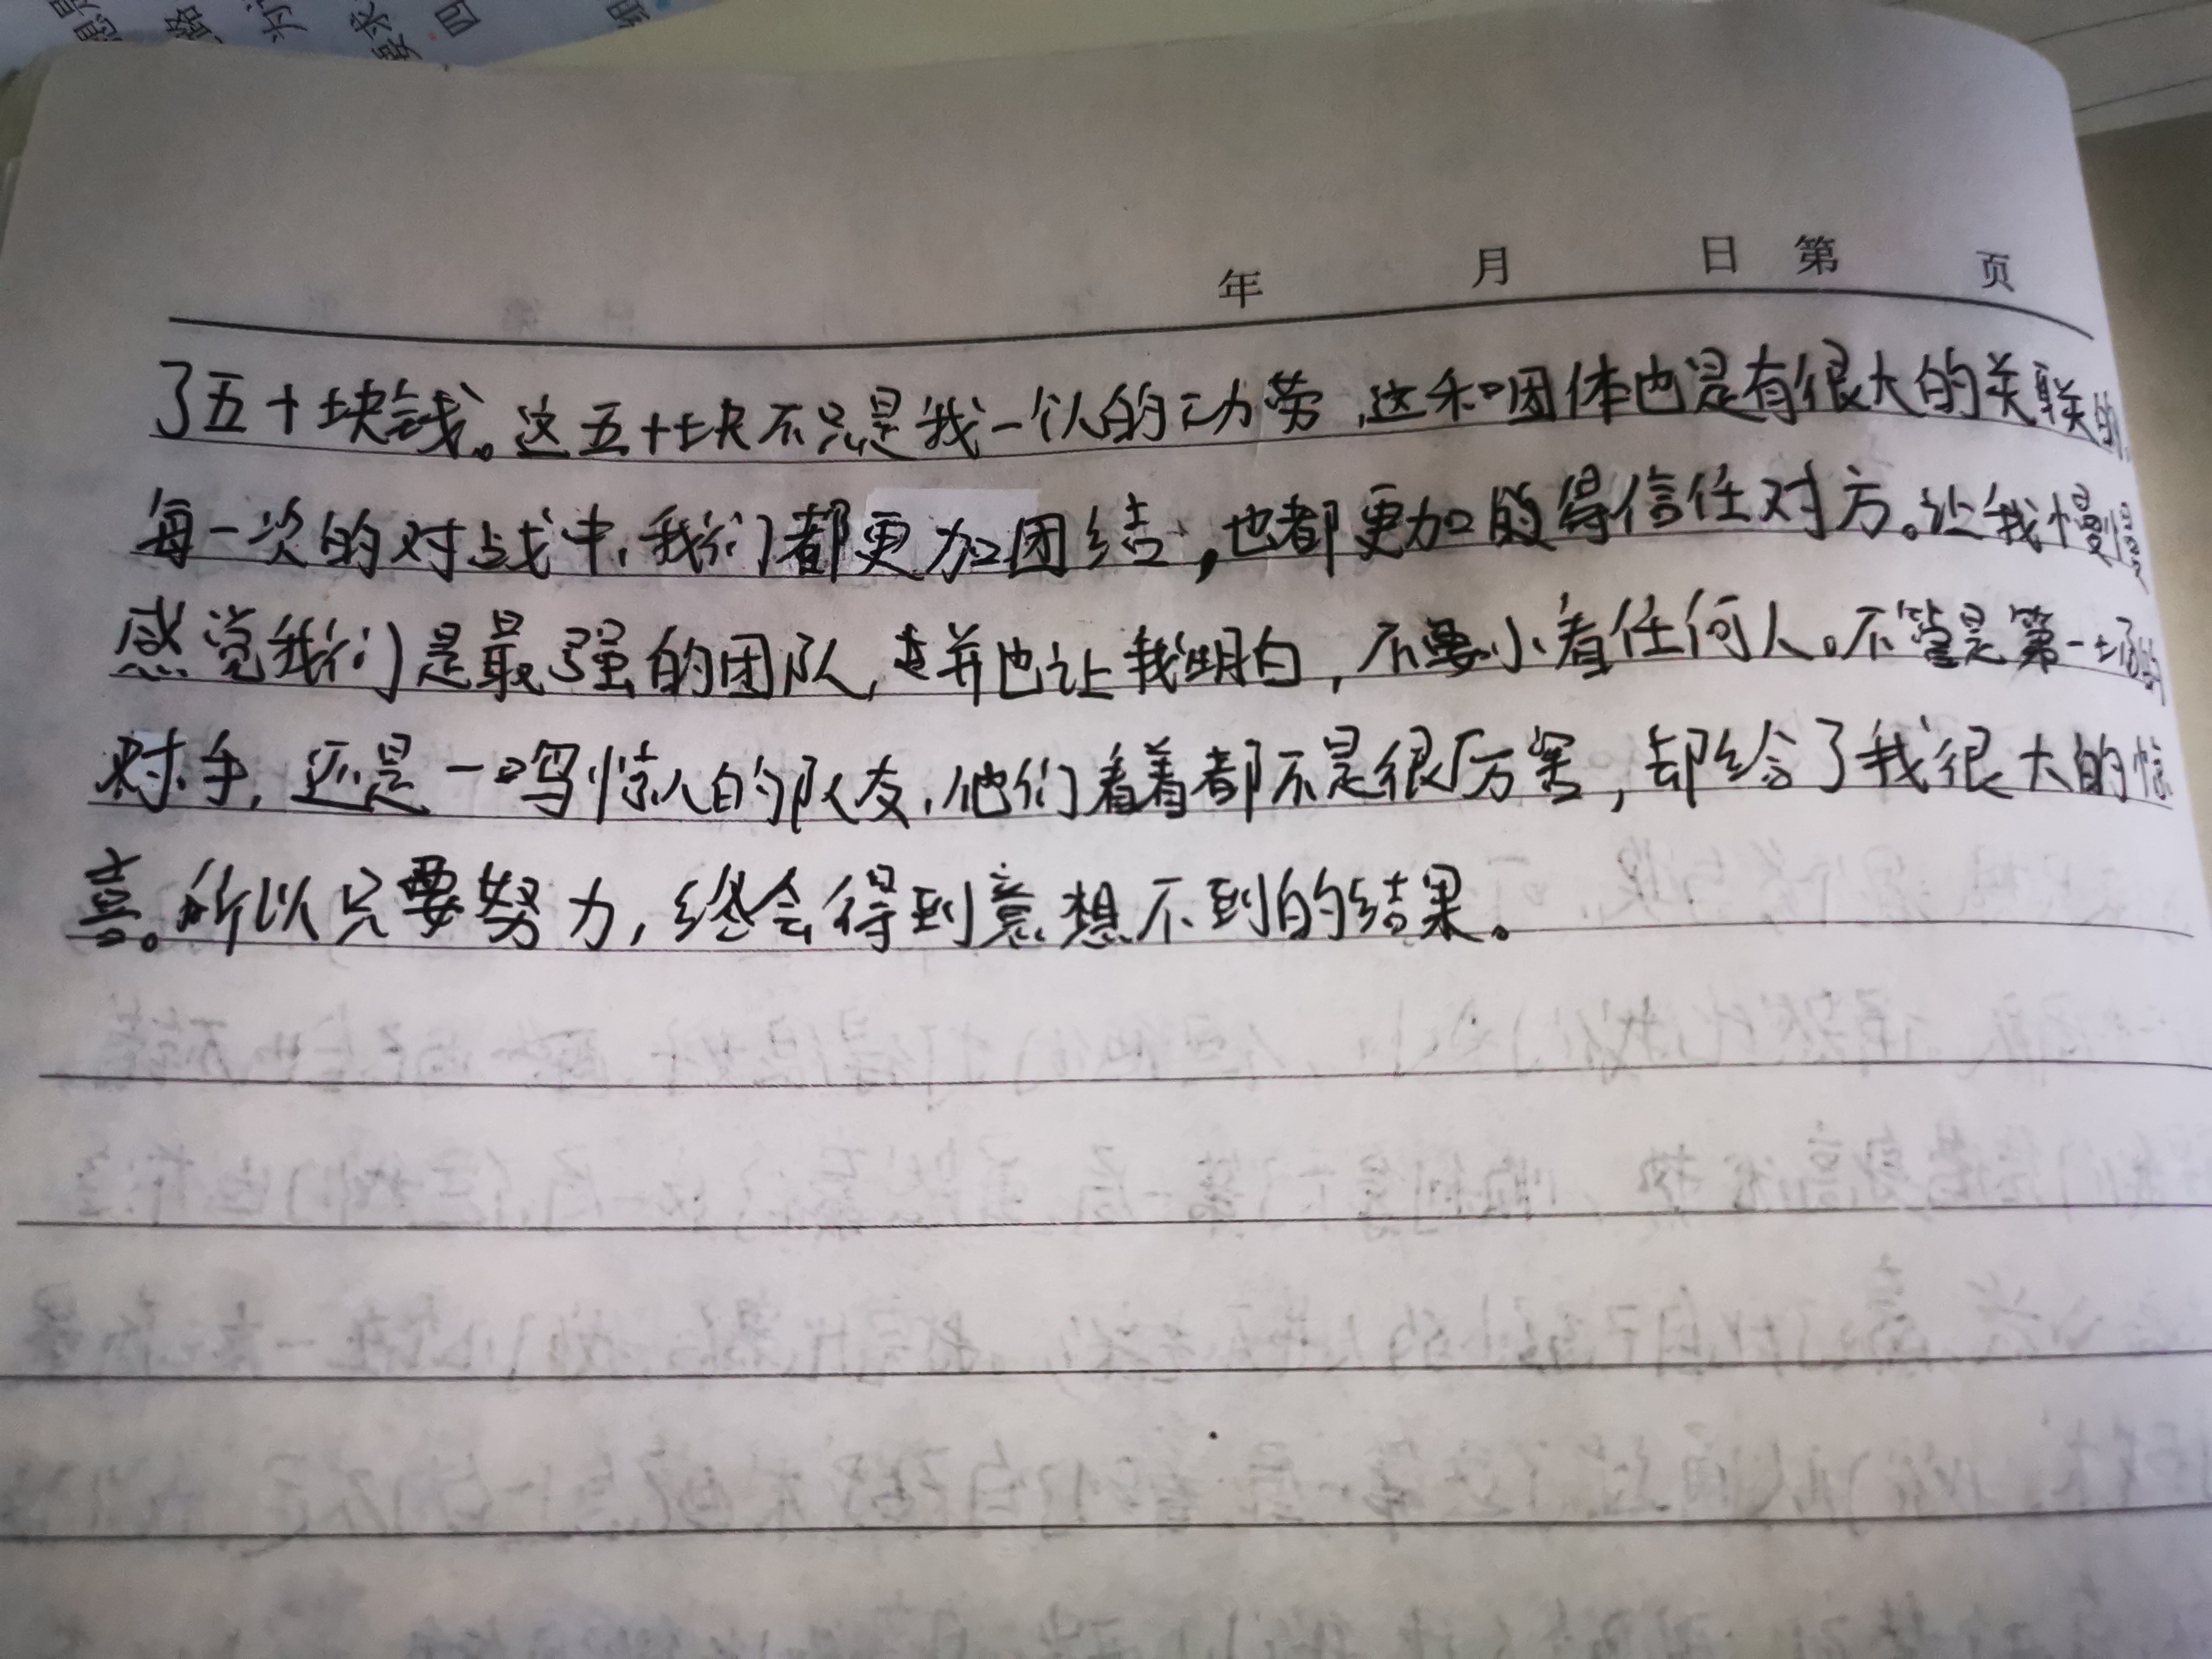 想是
路
为
要求
四
组
年 月 日 第 页
了五十块钱。这五十块不只是我一个人的功劳,这和团体也是有很大的关联的
每一次的对战中,我们都更加团结,也都更加的得信任对方。让我慢慢
感觉我们是最强的团队,并也让我明白,不要小看任何人。不管是第一场的
对手,还是一鸣惊人的队友,他们看着都不是很厉害,却给了我很大的惊
喜。所以只要努力,终会得到意想不到的结果。